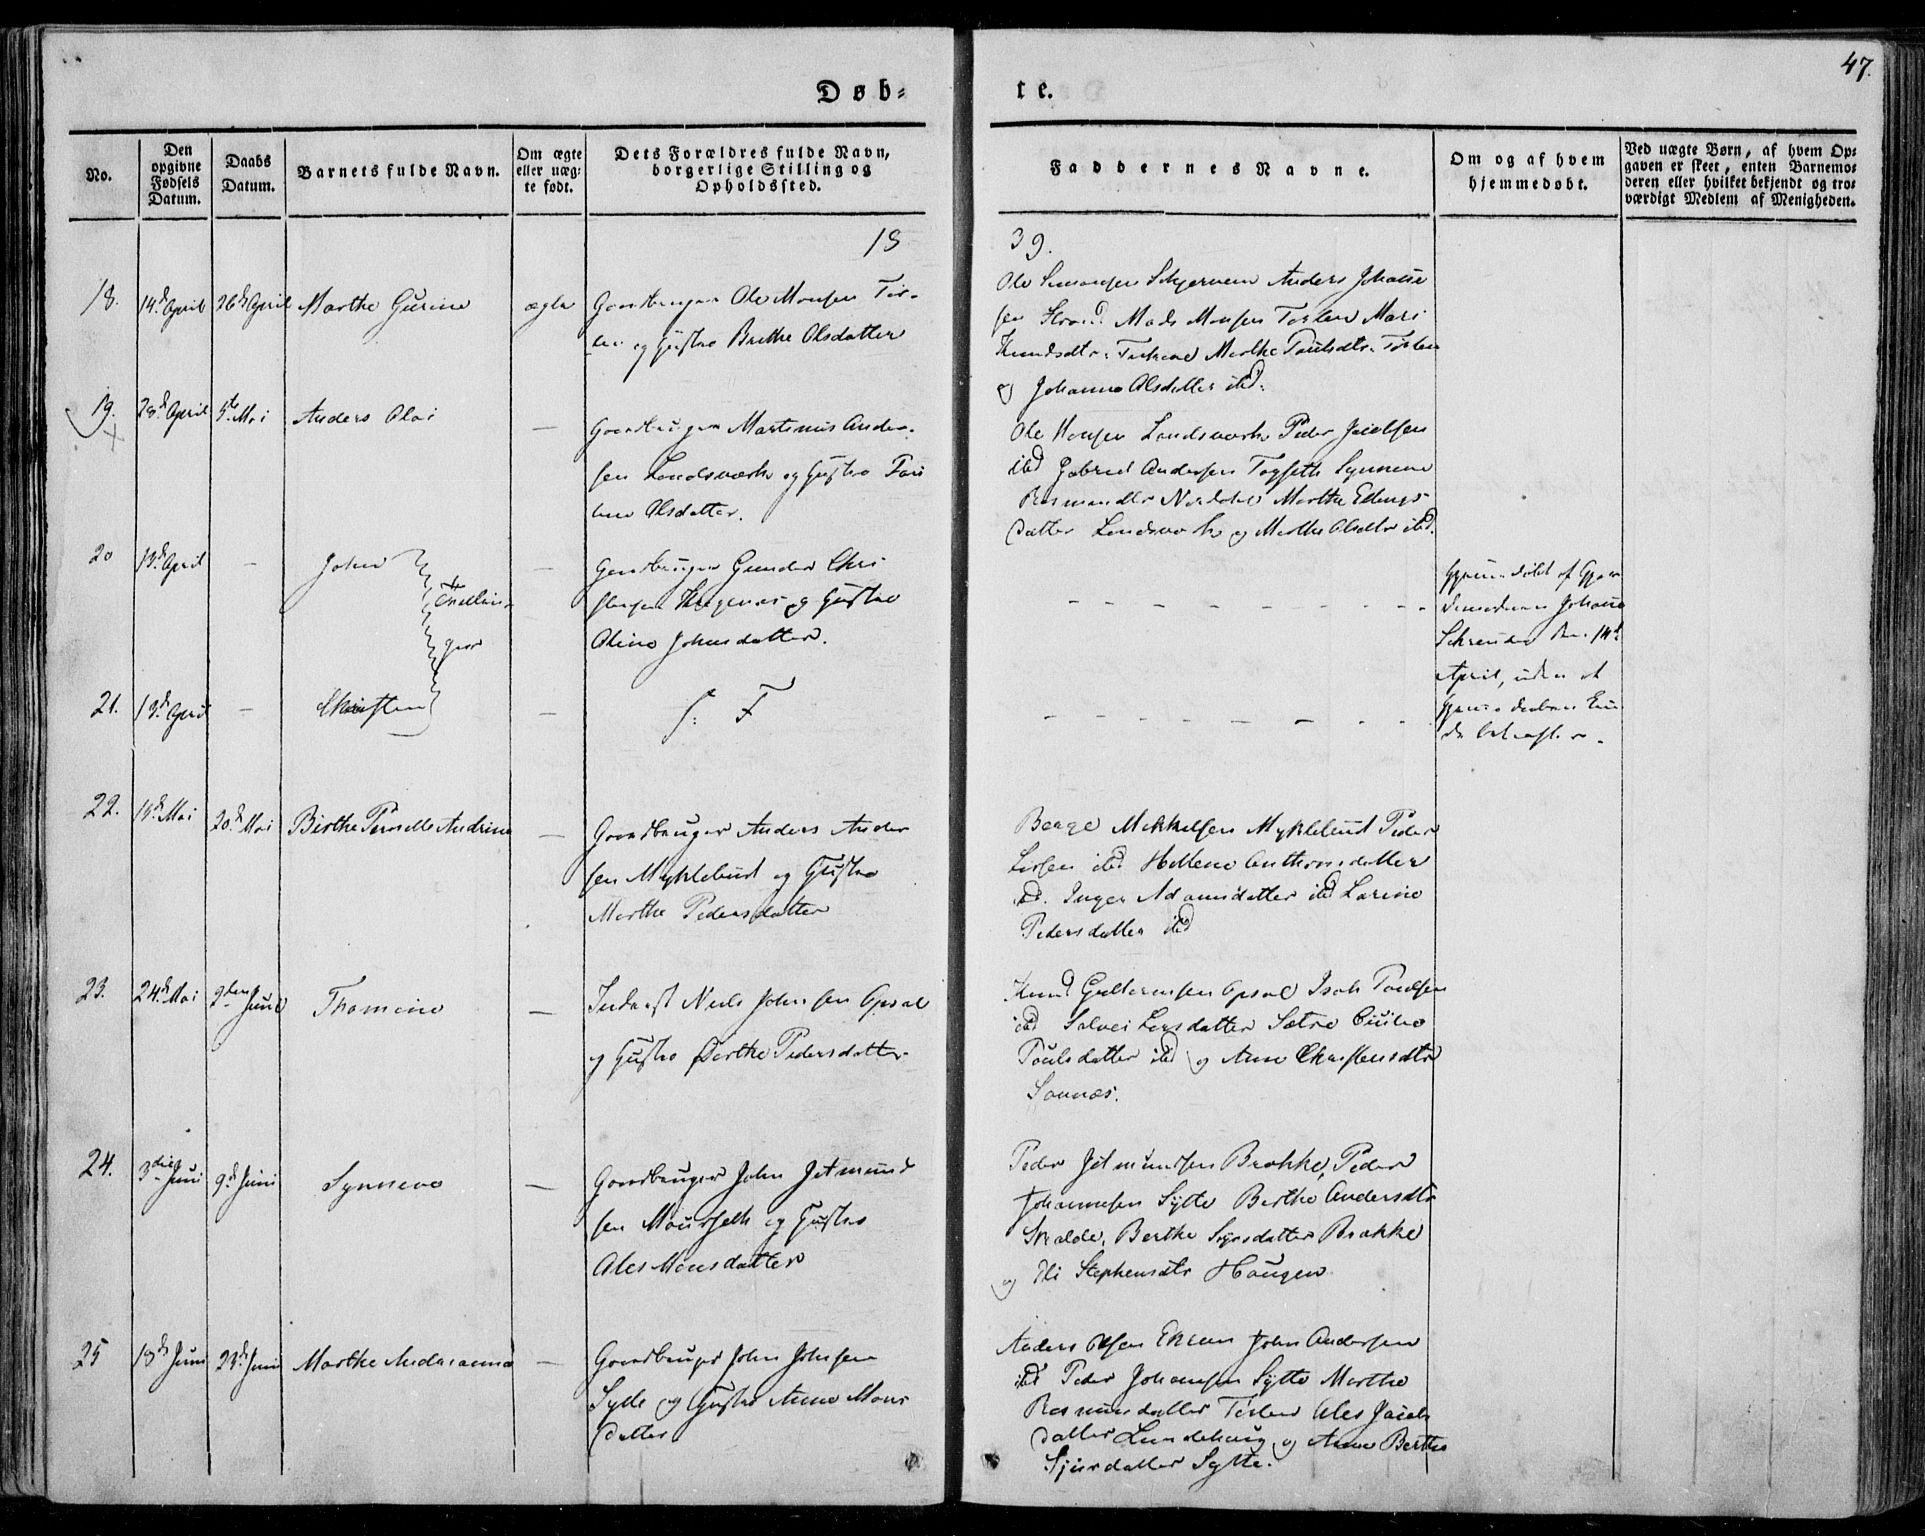 47.
Døb-
te.
No.
Den
opgivne
Fødsels
Datum.
Daabs
Datum.
Barnets fulde Navn.
Om ægte
eller uæg-
te født.
Dets Forældres fulde Navn,
borgerlige Stilling og
Opholdssted.
Faddernes Navne.
Om og af hvem
hjemmedøbt.
Ved uægte Børn, af hvem Op-
gaven er skeet, enten Barnemo-
deren eller hvilket bekjendt og tro-
værdigt Medlem af Menigheden.
18
39.
18.
14d April
26d April
Marthe Gurine
ægte
Gaardbruger Ole Monsen Tør-
len og Hustro Birthe Olsdatter
Ole Simonsen Anders Johanne
sen Strand Mads Monsen Tørlen Mari
Knudsdtr. Marthe Poulsdtr. Tørlen
og Johanna Olsdatter ibd.
19.
28d April
5te Mai
Anders Olai
—
Gaardbruger Martinus Ander-
sen Landsværk og Hustro
Olsdatter.
Ole Hansen Landsværk Peder Jacobsen
ibd Gabriel Andersen Synneve
Rasmusdtr Marthe
datter Landsværk og Marthe Olsdtr ibd.
20
13d April
—
John
Tvillin-
ger
—
Gaardbruger Gunder Chri
stensen og Hustro
Oline Johnsdatter.
- - - - - - - -
Hjemmedøbt af
Johanne
den 14d
April, uden at
21.
13d April
—
Christen
—
s: F
- - - - - - - -
22.
18d Mai
20d Mai
Birthe Pernelle Andrine
—
Gaardbruger Anders Ander
sen Myklebust og Hustro
Marthe Pedersdatter
Mikkelsen Myklebust Peder
Larsen ibd. Hellene Anthonsdatter
ibd. Inger Adamsdatter ibd Larine
Pedersdatter ibd
23.
24d Mai
9den Juni
Thomine
—
Inderst Niels Johnsen Opsal
og Hustro Berthe Pedersdatter
Knud Guttormsen Opsal Isak Poulsen
ibd Solvei Larsdatter Sætre
Poulsdatter ibd og Anne Christensdtr
Sonnæs.
24.
3die Juni
9d Juni
Synneve
—
Gaardbruger John Jetmund
sen Mourseth og Hustro
Ales Monsdatter
Peder Jetmundsen Brakke, Peder
Johannesen Sylte Berthe Andersdtr
Skalde, Berthe datter Brakke
og Eli Stephensdtr Haugen
25
18d Juni
23d Juni
Marthe Andreanna
—
Gaardbruger John Johnsen
Sylte og Hustro Anne Mons
datter
Anders Olsen Ekrem John Andersen
ibd Peder Johansen Sylte Marthe
Rasmusdatter Tørlen Ales Jacobs
datter Lundehaug og Anne Berthe
Sjursdatter Sylte.